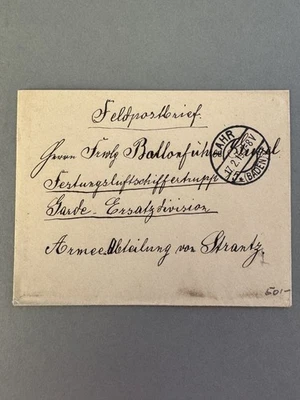 Feldpostbrief.
LAHR
(BADEN)
Herrn Frwlg Ballonführer
Festungsluftschiffertrupp
Garde-Ersatzdivision
Armee Abteilung von Strantz.